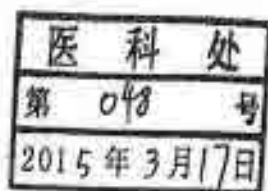 医科处
第 048 号
2015年3月17日